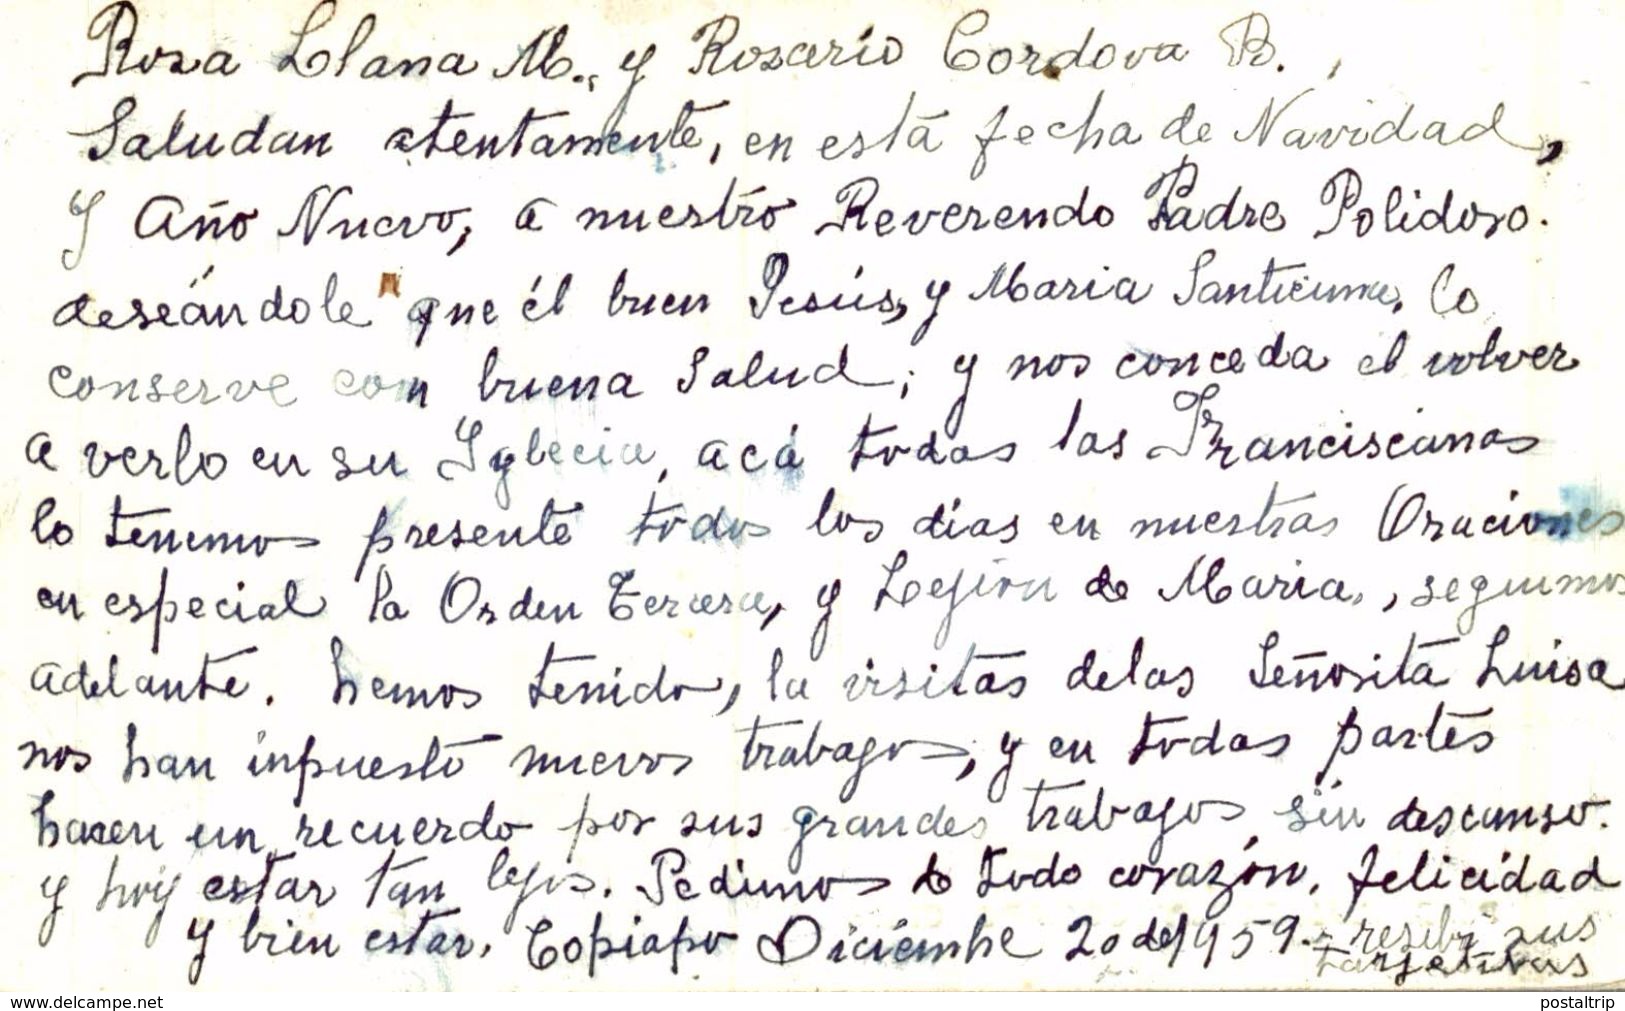 Rosa Llana M., y Rosario Cordova B.,
Saludan atentamente, en está fecha de Navidad,
y Año Nuevo, a nuestro Reverendo Padre Polidoro.
deseándole que él buen Jesús, y Maria Santicima, lo
conserve con buena Salud, y nos conceda el volver
a verlo en su Yglecia, acá todas las Franciscanas
lo tenemos presente todos los días en nuestras Oraciones
en especial la Orden Tercera, y Lejion de Maria, seguimos
adelante. hemos tenido, la visitas delas Señorita Luisa
nos han inpuesto nuevos trabagos, y en todas partes
hacen un recuerdo por sus grandes trabagos sin descanso.
y hoy estar tan lejos. Pedimos de todo corazón, felicidad
y bien estar. Copiapo Diciembre 20 de 1959. - resebi sus
tarjetitas
www.delcampe.net
postaltrip